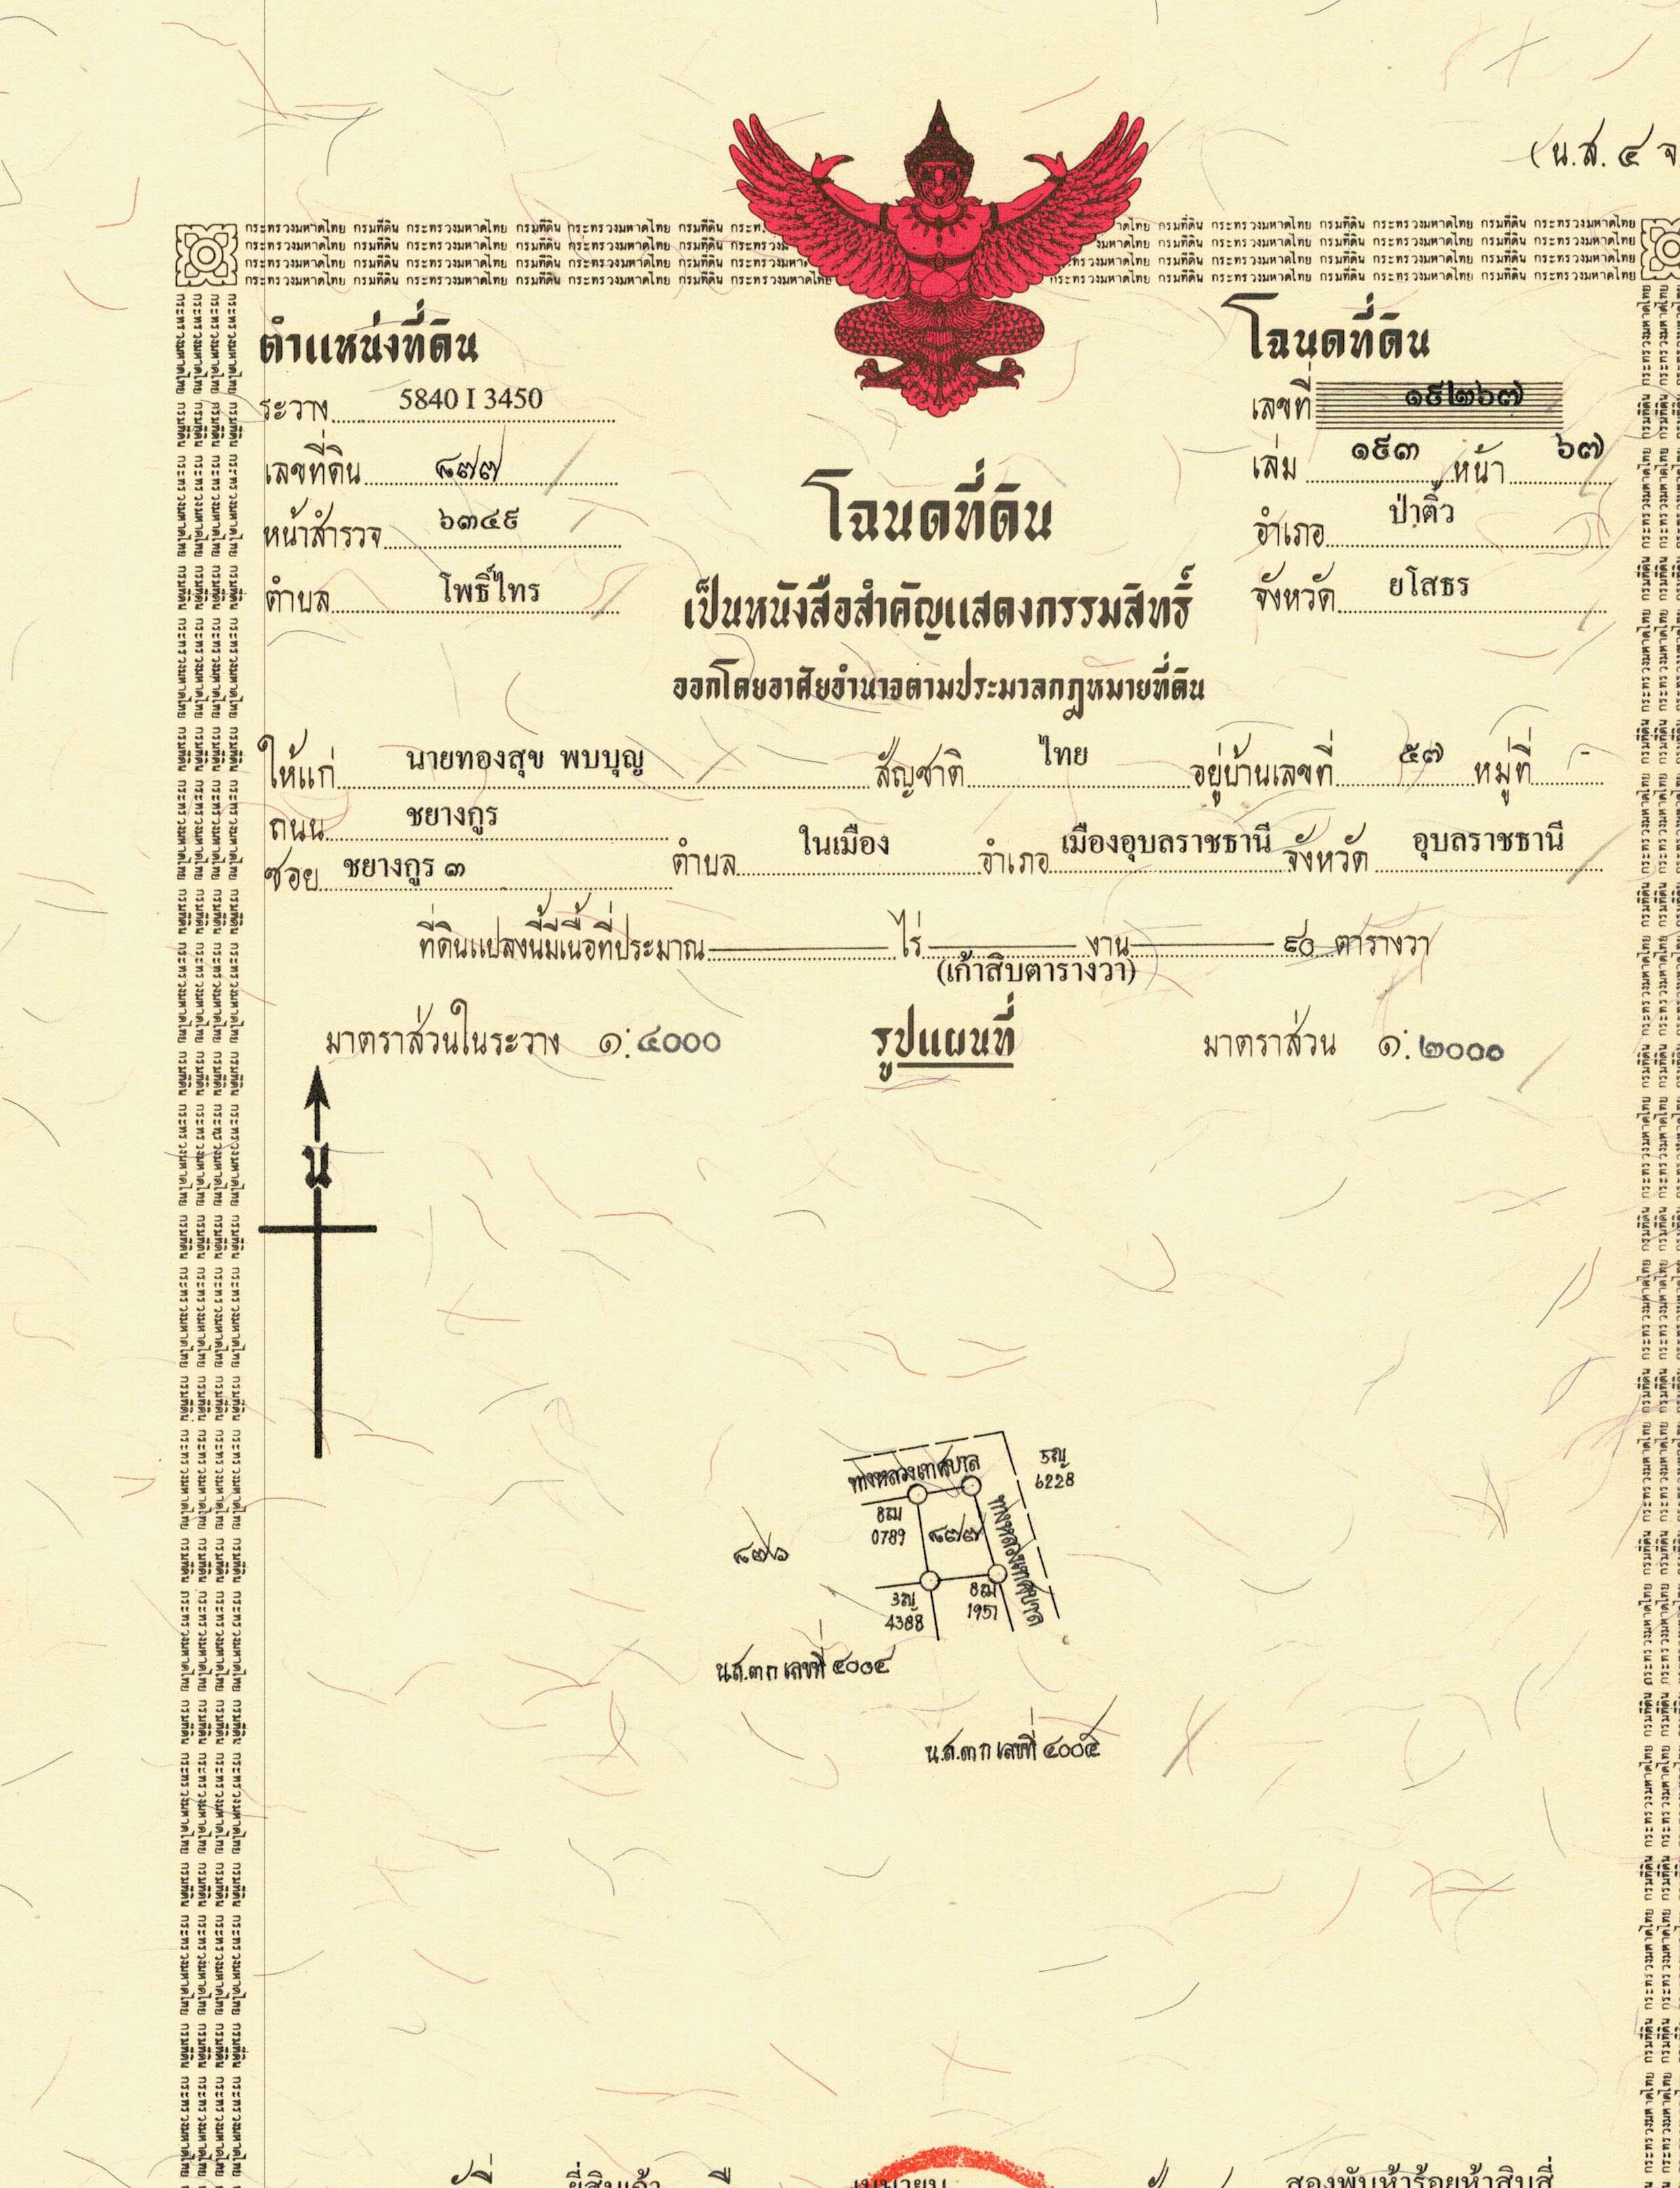 (น.ส. ๔ จ
กระทรวงมหาดไทย กรมที่ดิน กระทรวงมหาดไทย กรมที่ดิน กระทรวงมหาดไทย กรมที่ดิน
ตำแหน่งที่ดิน
ระวาง 5840 I 3450
เลขที่ดิน ๘๗๗
หน้าสำรวจ ๖๓๔๙
ตำบล โพธิ์ไทร
โฉนดที่ดิน
เลขที่ ๑๙๒๖๗
เล่ม ๑๙๓ หน้า ๖๗
อำเภอ ป่าติ้ว
จังหวัด ยโสธร
โฉนดที่ดิน
เป็นหนังสือสำคัญแสดงกรรมสิทธิ์
ออกโดยอาศัยอำนาจตามประมวลกฎหมายที่ดิน
ให้แก่ นายทองสุข พบบุญ สัญชาติ ไทย อยู่บ้านเลขที่ ๕๗ หมู่ที่ -
ถนน ชยางกูร
ซอย ชยางกูร ๓ ตำบล ในเมือง อำเภอ เมืองอุบลราชธานี จังหวัด อุบลราชธานี
ที่ดินแปลงนี้มีเนื้อที่ประมาณ ไร่ งาน ๙๐ ตารางวา
(เก้าสิบตารางวา)
มาตราส่วนในระวาง ๑:๔๐๐๐ รูปแผนที่ มาตราส่วน ๑:๒๐๐๐
น
ทางหลวงเทศบาล
6228
0789
๘๗๗
ทางหลวงเทศบาล
๘๗๖
4388
1951
น.ส.๓ ก เลขที่
น.ส.๓ ก เลขที่
ยี่สิบเก้า เมษายน สองพันห้าร้อยห้าสิบสี่